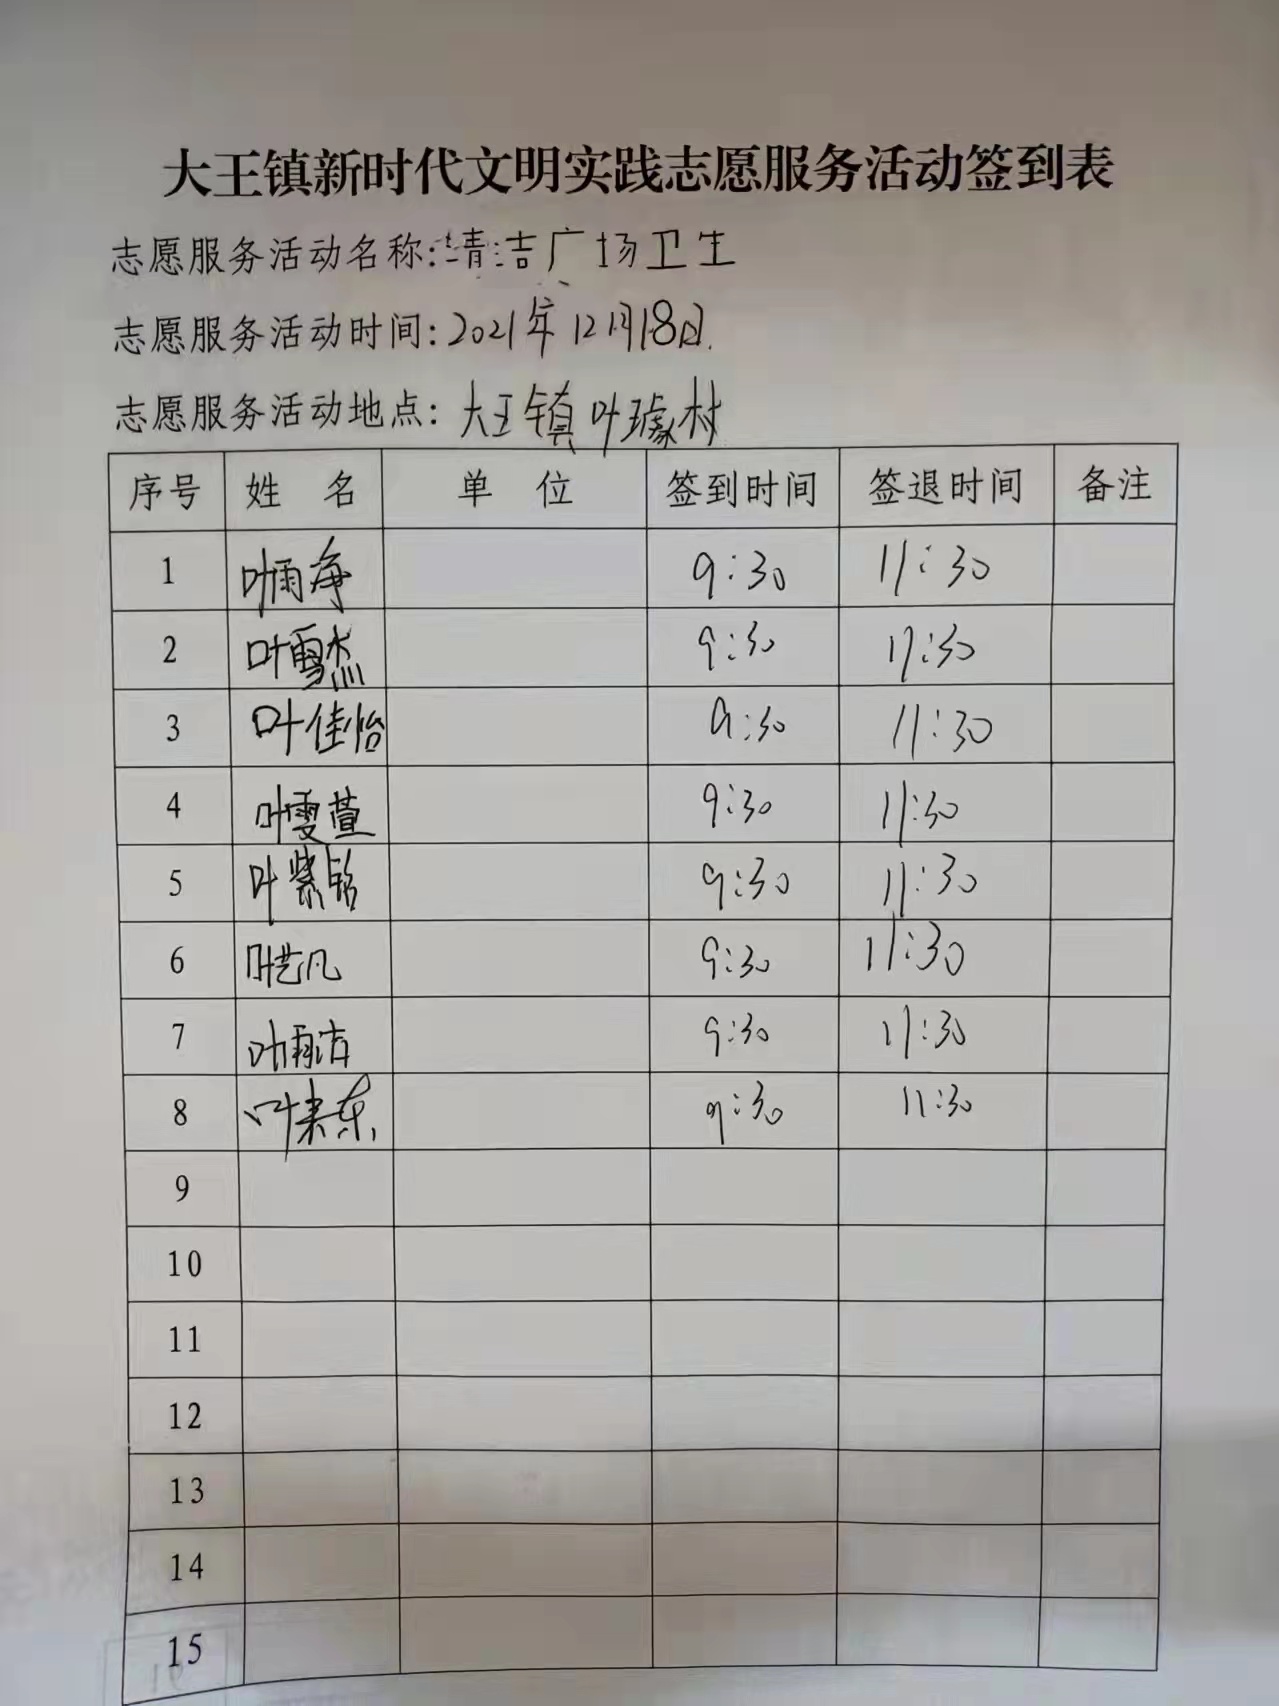 大王镇新时代文明实践志愿服务活动签到表
志愿服务活动名称:清洁广场卫生
志愿服务活动时间:2021年12月18日.
志愿服务活动地点: 大王镇叶璩村
序号 姓 名 单 位 签到时间 签退时间 备注
1 叶雨净 9:30 11:30
2 叶雪杰 9:30 11:30
3 叶佳怡 9:30 11:30
4 叶雯萱 9:30 11:30
5 叶紫铭 9:30 11:30
6 叶艺凡 9:30 11:30
7 叶雨洁 9:30 11:30
8 叶 东 9:30 11:30
9
10
11
12
13
14
15